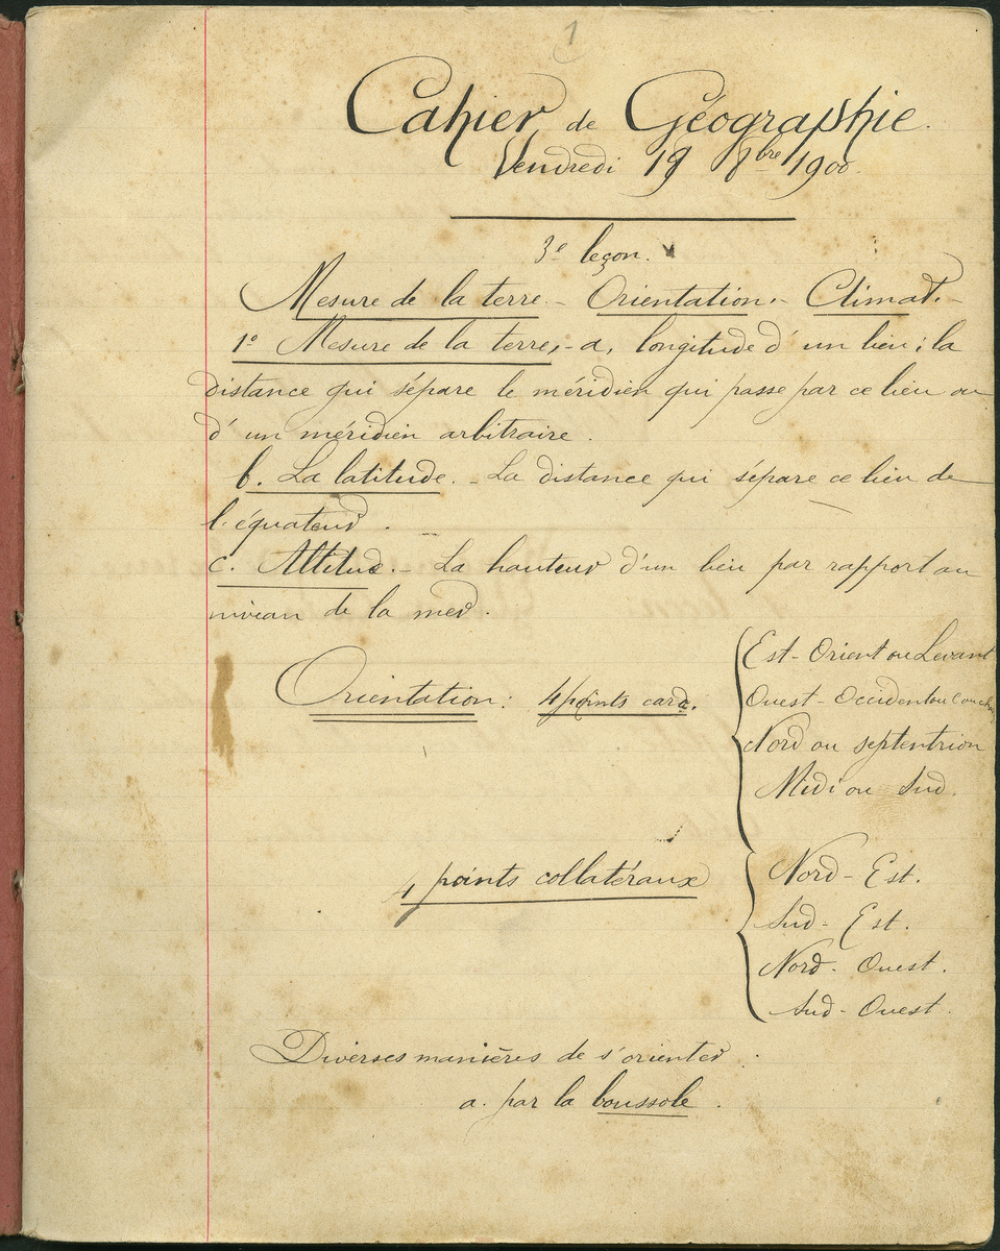 1
Cahier de Géographie.
Vendredi 19 8bre 1900.
3e leçon.
Mesure de la terre - Orientation. - Climat. -
1o Mesure de la terre, - a, longitude d'un lieu; la
distance qui sépare le méridien qui passe par ce lieu ou
d'un méridien arbitraire.
b. La latitude. - La distance qui sépare ce lieu de
l'équateur.
c. Altitude. - La hauteur d'un lieu par rapport au
niveau de la mer.
Orientation: 4 points card.
Est - Orient ou Levant
Ouest - Occident ou Couchant
Nord ou septentrion
Midi ou Sud.
4 points collatéraux
Nord - Est.
Sud - Est.
Nord - Ouest.
Sud - Ouest.
Diverses manières de s'orienter.
a. par la boussole.